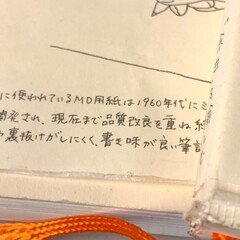 に使われているMD用紙は1960年代にミ
開発され、現在まで品質改良を重ね 紙
裏抜けがしにくく、書き味が良い筆記